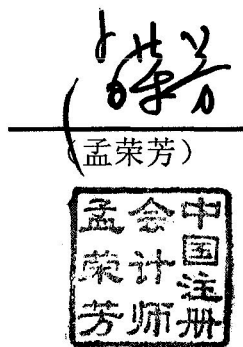 孟荣芳
(孟荣芳)
中国注册
会计师
孟荣芳